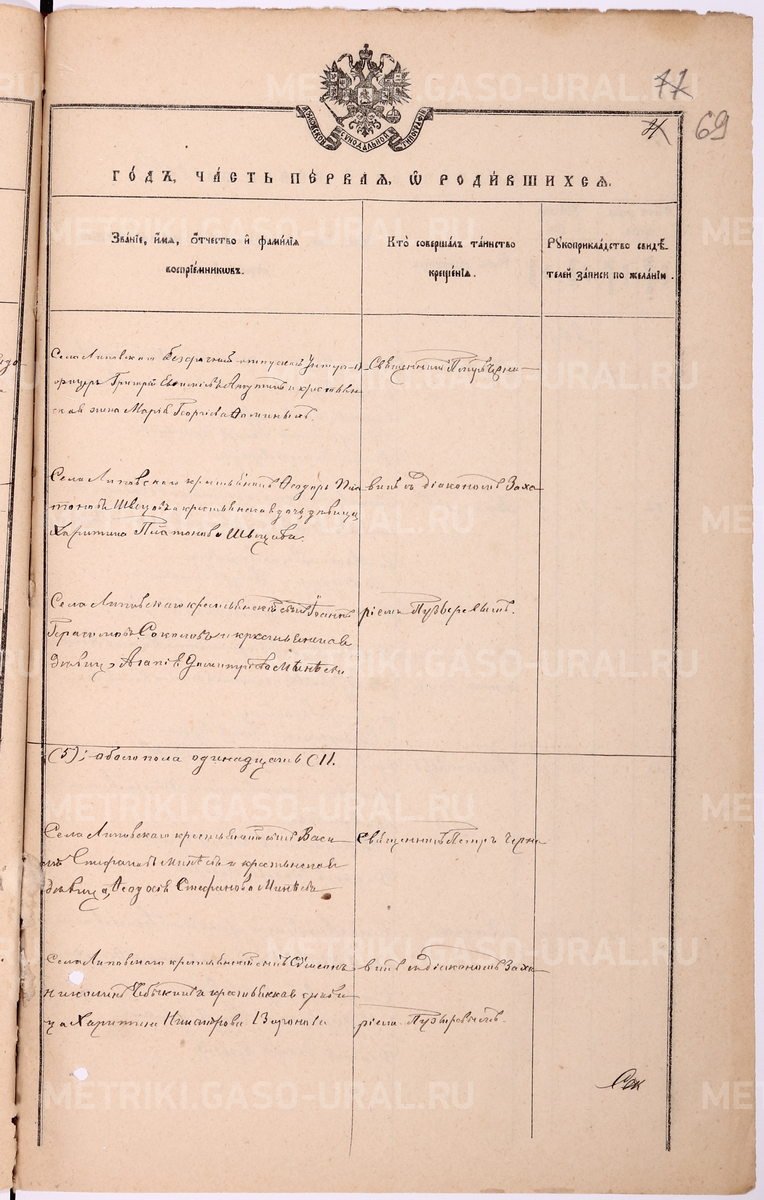 77
69
МОСКОВСКОЙ СѴНОДАЛЬНОЙ ТИПОГРАФІИ
ГОДЪ, ЧАСТЬ ПЕРВАЯ, Ѡ РОДИВШИХСЯ.
Званіе, имя, отчество и фамилія
воспріемниковъ.
Кто совершалъ таинство
крещенія.
Рукоприкладство свидѣ
телей записи по желанію.
Села Липовского отпускн Унтеръ
офицеръ Григорій и крестьян
ская жена Марія Георгіева
Священникъ Петръ Черна
Села Липовского крестьянинъ Ѳеодоръ Пла
тоновъ Швецовъ и крестьянская дочь, дѣвица
Харитина Платонова Швецова.
винъ съ діакономъ Заха
Села Липовскаго крестьянскій сынъ Іоаннъ
Герасимовъ Соколовъ и крестьянская
дѣвица Агапія Димитріева Минѣева.
ріемъ Пузыревымъ.
(5); обоего пола одинадцать (11.
Села Липовского крестьянскій сынъ Васи
лій Стефановъ Минѣевъ и крестьянская
дѣвица, Ѳеодосія Стефанова Минѣева
Священникъ Петръ Черна
Села Липовского крестьянскій сынъ Симеонъ
и крестьянская дѣви
ца Харитина Воронова
винъ съ діакономъ Заха
ріемъ Пузыревымъ.
METRIKI.GASO-URAL.RU